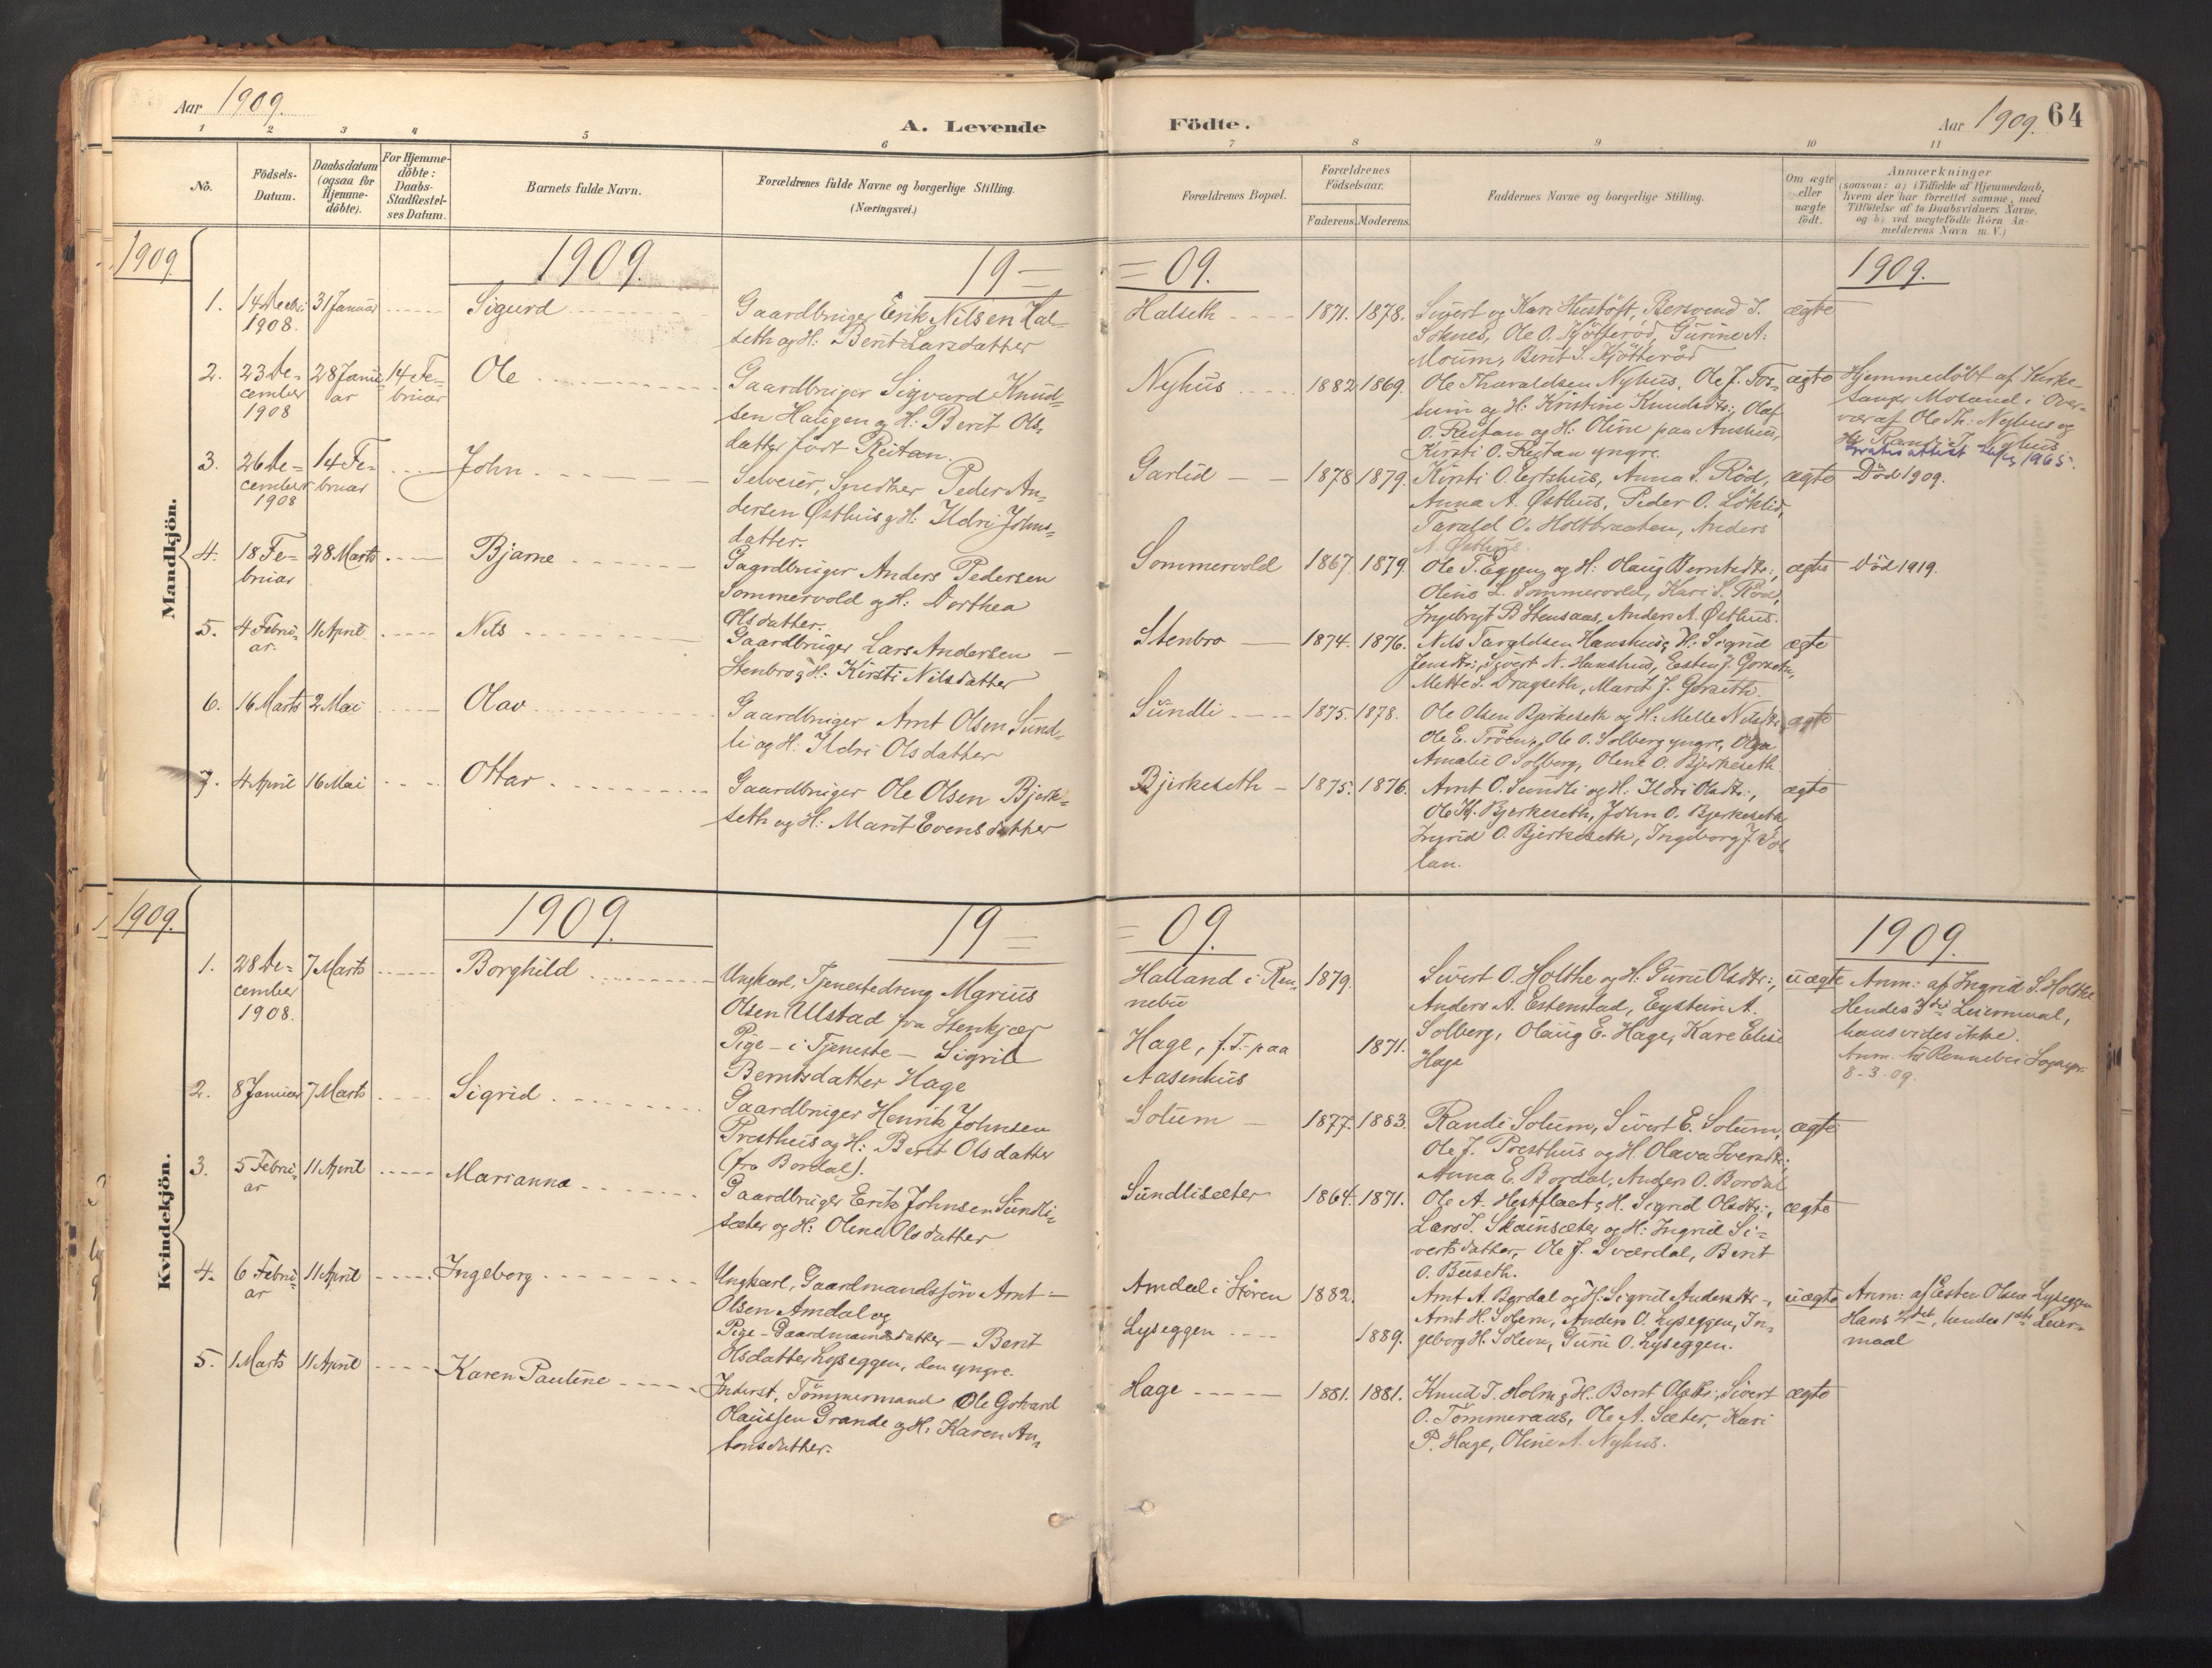 Aar 1909.
A. Levende
Födte.
Aar 1909. 64
1 2 3 4 5 6 7 8 9 10 11
No.
Födsels-
Datum.
Daabsdatum
(ogsaa for
Hjemme-
döbte).
For Hjemme-
döbte:
Daabs-
Stadfæstel-
ses Datum.
Barnets fulde Navn.
Forældrenes fulde Navne og borgerlige Stilling.
(Næringsvei.)
Forældrenes Bopæl.
Forældrenes
Födselsaar.
Faderens. Moderens.
Faddernes Navne og borgerlige Stilling.
Om ægte
eller
uægte
födt.
Anmærkninger
(saasom: a) i Tilfælde af Hjemmedaab,
hvem der har forrettet samme, med
Tilföielse af to Daabsvidners Navne,
og b) ved uægtefödte Börn An-
melderens Navn m. V.)
Mandkjön.
1909. 1909. 19 = = 09. 1909.
1. 14 Decbr.
1908. 31 Januar
Sigurd
Gaardbruger Erik Nilsen Hal-
seth og H: Berit Larsdatter
Halseth 1871. 1878.
Sivert og Kari Hustöft, Bersvend I.
Soknes, Ole O. Kjötteröd, Gurine A.
Moum, Berit S. Kjötteröd
ægte
2. 23 De-
cember
1908
28 Janu-
ar
14 Fe-
bruar
Ole
Gaardbruger Sigvard Knud-
sen Haugen og H: Berit Ols-
datter födt Reitan.
Nyhus 1882 1869.
Ole Tharaldsen Nyhus, Ole J. Fos-
sum og H: Kristine Knudsdtr:, Olaf
O. Reitan og H: Oline paa Aushus,
Kirsti O. Reitan yngre.
ægte
Hjemmedöbt af Kirke-
sanger Mosand i Over-
vær af Ole Th: Nyhus og
H: Randi I. Nyhus
1965.
3. 26 De-
cember
1908
14 Fe-
bruar
John
Selveier, Snedker Peder An-
dersen Østhus og H: Ildri Johns-
datter.
Garlid 1878 1879.
Kirsti O. Ertshus, Anna S. Röd,
Anna A. Østhus, Peder O. Löklid,
Tarald O. Holtbraaten, Anders
A. Østhus.
ægte
Död 1909.
4. 18 Fe-
bruar
28 Marts
Bjarne
Gaardbruger Anders Pedersen
Sommervold og H: Dorthea
Olsdatter.
Sommervold 1867. 1879
Ole T. Eggen og H: Olaug Berntsdtr:,
Olino L. Sommervold, Kari S. Röd,
Ingebrigt B Stensaas, Anders A. Østhus.
ægte
Död 1919.
5. 4 Febru-
ar.
11 April
Nils
Gaardbruger Lars Andersen
Stenbro og H: Kirsti Nilsdatter
Stenbro 1874. 1876.
Nils Taraldsen Haushus og H: Sigrid
Jensdtr:, Sivert N. Haushus, Esten J. Gorseth,
Mette S. Dragseth, Marit J. Gorseth.
ægte
6. 16 Marts 2 Mai
Olav
Gaardbruger Arnt Olsen Sund-
li og H: Ildri Olsdatter
Sundli 1875. 1878.
Ole Olsen Bjerkeseth og H: Melle Nilsdtr:
Ole E. Tröen, Ole O. Solberg yngre, Olga
Amalie O Solberg, Olene O. Bjerkeseth
ægte
7. 4 April 16 Mai
Ottar
Gaardbruger Ole Olsen Bjerke-
seth og H: Marit Evensdatter
Bjerkeseth 1875. 1876.
Arnt O. Sundli og H: Ildri Olsdtr:,
Ole Kr. Bjerkeseth, John O. Bjerkeseth,
Ingrid O. Bjerkeseth, Ingeborg J. Vol-
lan.
ægte
Kvindekjön.
1909. 1909. 19 = = 09. 1909.
1. 28 De-
cember
1908.
7 Marts
Borghild
Ungkarl, Tjenestedreng Marius
Olsen Ulstad fra Stenkjær
Pige - i Tjeneste - Sigrid
Berntsdatter Hage
Halland i Ren-
nebu
1879.
Hage, f. T. paa
Aasenhus
1871.
Sivert O. Holthe og H: Guru Olsdtr:,
Anders A. Estenstad, Eystein A.
Solberg, Olaug E. Hage, Kare Elise
Hage
uægte
Anm: af Ingrid S. Holthe
Hendes 3die Leiermaal,
hans vides ikke.
Anm. til Rennebu Sognepr.
8-3-09.
2. 8 Januar 7 Marts
Sigrid
Gaardbruger Henrik Johnsen
Presthus og H: Berit Olsdatter
(fra Bordal).
Solum 1877. 1883.
Randi Solum, Sivert E. Solum,
Ole J. Presthus og H: Olava Iversdtr:,
Anna E. Bordal, Anders O. Bordal
ægte
3. 5 Febru-
ar
11 April
Marianna
Gaardbruger Erik Johnsen Sundli-
sæter og H: Olene Olsdatter
Sundlisæter 1864. 1871.
Ole A. Hestflaet og H: Sigrid Olsdtr:,
Lars J. Skainsæter og H: Ingrid Si-
vertsdatter, Ole J. Sværdal, Berit
O. Buseth.
ægte
4. 6 Febru-
ar
11 April
Ingeborg
Ungkarl, Gaardmandssön Arnt
Olsen Amdal og
Pige - Gaardmandsdatter - Berit
Olsdatter Lyseggen, den yngre.
Amdal i Stören 1882.
Lyseggen 1889.
Arnt A. Bordal og H: Sigrid Andersdtr:,
Arnt H. Solem, Anders O. Lyseggen, In-
geborg H. Solem, Guru O. Lyseggen.
uægte
Anm: af Esten Olsen Lyseggen
Hans 2det, hendes 1ste Leier-
maal
5. 1 Marts 11 April
Karen Pauline
Inderst, Tömmermand Ole Gotvard
Olaussen Grande og H: Karen An-
tonsdatter.
Hage 1881. 1881.
Knud J. Holm og H: Berit Olsdtr:, Sivert
O. Tömmeraas, Ole A. Sæter, Kari
P. Hage, Oline A. Nyhus.
ægte